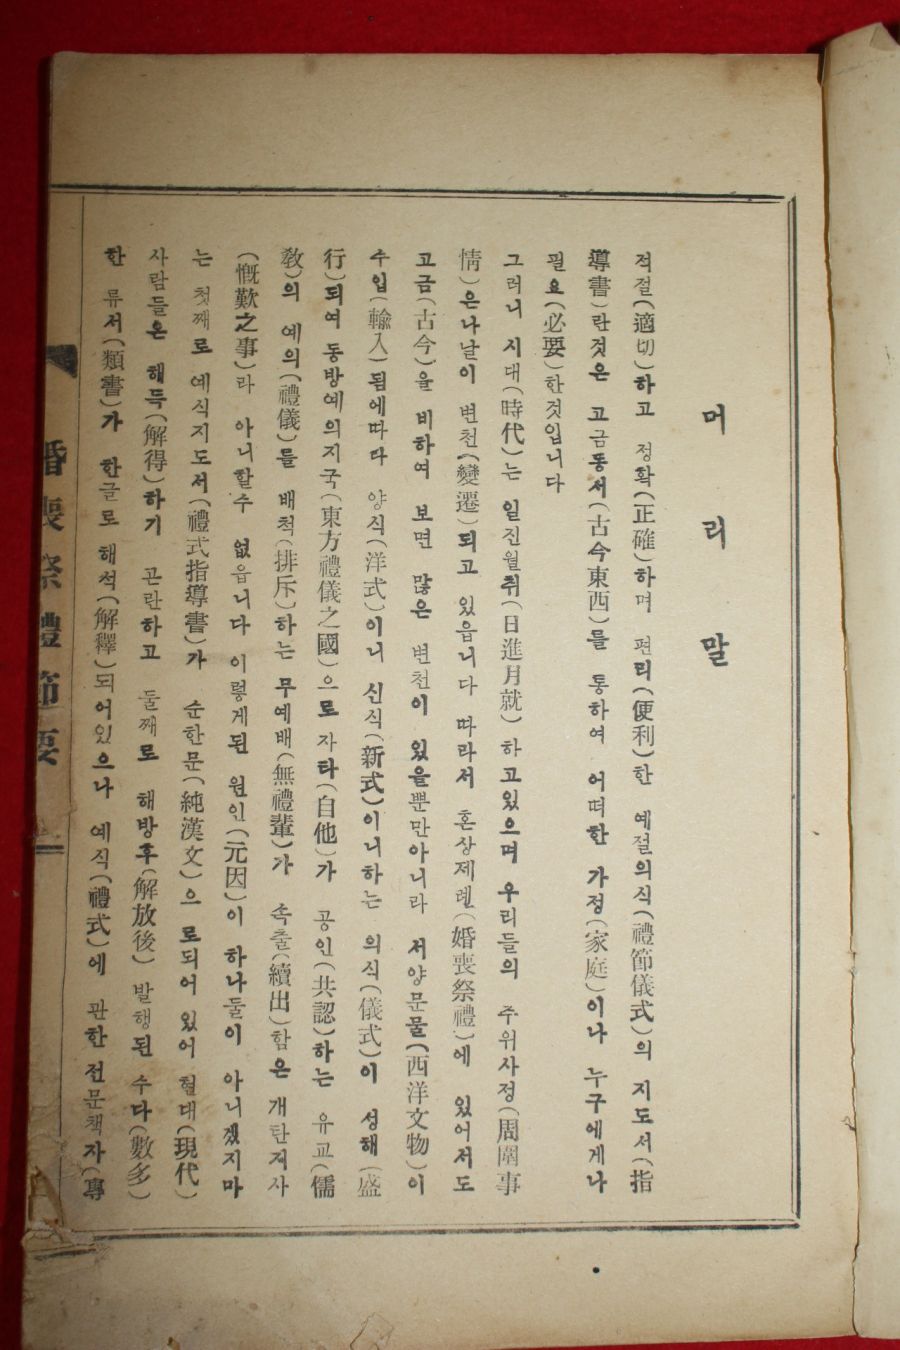 머리말
적절(適切)하고 정확(正確)하며 편리(便利)한 예절의식(禮節儀式)의 지도서(指
導書)란것은 고금동서(古今東西)를 통하여 어떠한 가정(家庭)이나 누구에게나
필요(必要)한것입니다
그러니 시대(時代)는 일진월취(日進月就) 하고있으며 우리들의 주위사정(周圍事
情)은나날이 변천(變遷)되고 있읍니다 따라서 혼상제렌(婚喪祭禮)에 있어서도
고금(古今)을 비하여 보면 많은 변천이 있을뿐만아니라 서양문물(西洋文物)이
수입(輸入)됨에따다 양식(洋式)이니 신식(新式)이니하는 의식(儀式)이 성해(盛
行)되여 동방예의지국(東方禮儀之國)으로 자타(自他)가 공인(共認)하는 유교(儒
敎)의 예의(禮儀)를 배척(排斥)하는 무예배(無禮輩)가 속출(續出)함은 개탄지사
(慨歎之事)라 아니할수 없읍니다 이렇게된 원인(元因)이 하나둘이 아니겠지마
는 첫째로 예식지도서(禮式指導書)가 순한문(純漢文)으로되어 있어 현대(現代)
사람들은 해득(解得)하기 곤란하고 둘째로 해방후(解放後) 발행된 수다(數多)
한 류서(類書)가 한글로 해석(解釋)되어있으나 예식(禮式)에 관한 전문책자(專
婚喪祭禮節要